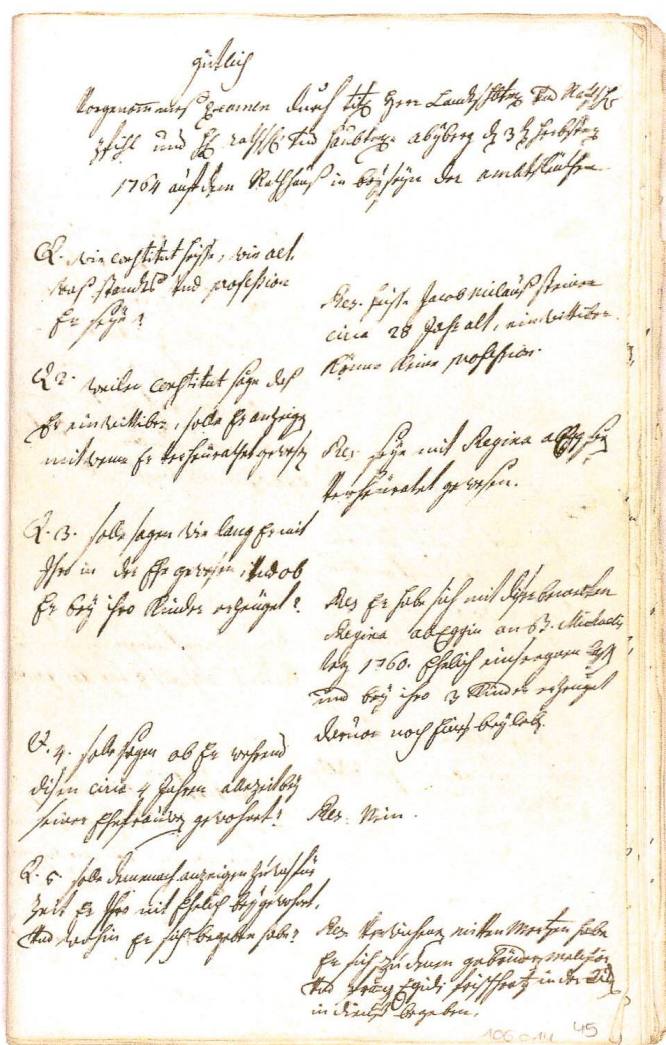 gütlich
Vorgenommenes Examen durch tit. Herren Landts
und Rathsh. und Haubtm. abÿberg d. 3t. herbstm.
1764 auf dem Rathhaus in beÿseÿn der ambtsleüthen
Q. wie constitut heisse, wie alt
was standts und profession
Er seÿe?
Res. heisse Jacob Niclaus steiner
circa 28 Jahr alt, ein wittiber
könne keine profession.
Q 2. weilen constitut sage das
Er ein wittiber, solle Er anzeigen
mit wem Er verheürathet gewesen
Res. seÿe mit Regina
verheüratet gewesen.
Q. 3. solle sagen wie lang Er mit
Ihro in der Ehe gewesen, und ob
Er beÿ ihro Kinder erzeüget?
Res. Er habe sich mit diser benanten
Regina an St. Michaelis
tag 1760. Ehelich einsegnen
und beÿ ihro 3 Kinder erzeüget
darvon noch beÿ leben.
Q. 4. solle sagen ob Er wehrend
disen circa 4 Jahren allezeit beÿ
seiner Ehefrauwen gewohnet?
Res. Nein.
Q. 5 solle demenach anzeigen zu was für
Zeit Er Ihro nit Ehelich beÿgewohnt,
und wohin Er sich begeben habe?
Res. verwichenen mitten Mertzen habe
Er sich zu denen gebrüdern
und in der
in dienst begeben.
106 c. 14 45